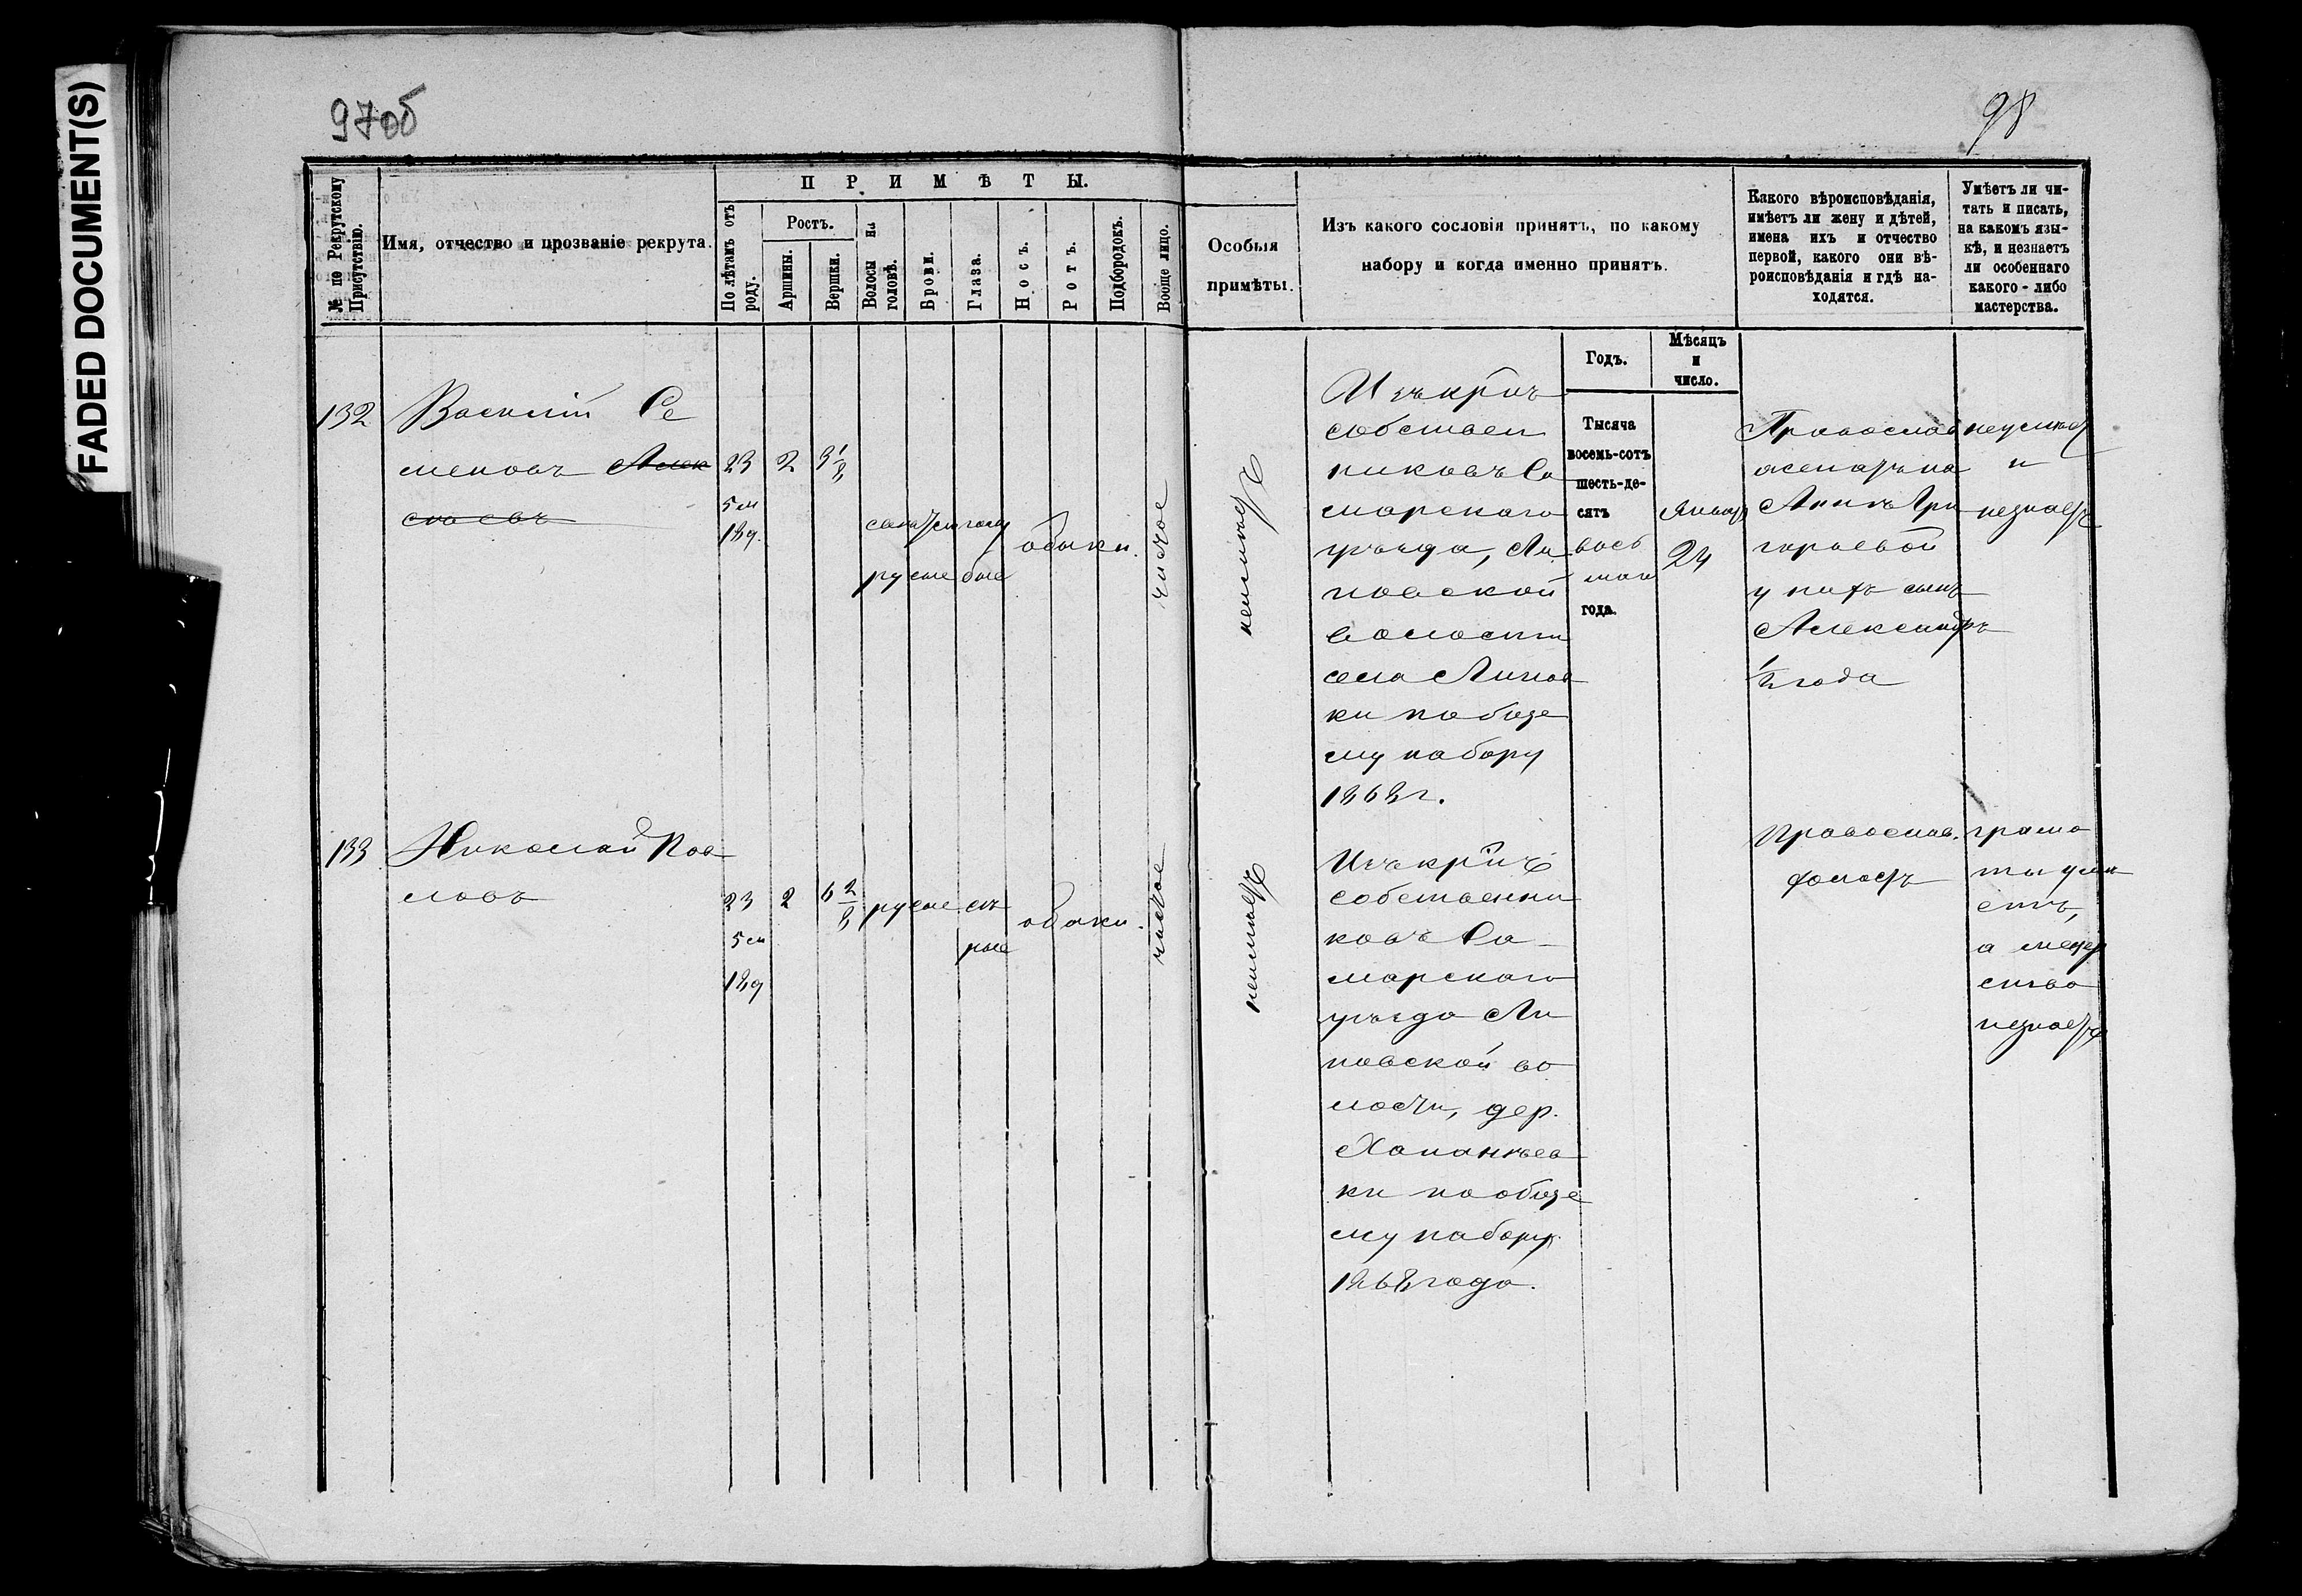 FADED DOCUMENT(S)
97об
98
№ по Рекрутскому Присутствію.
Имя, отчество и прозваніе рекрута.
ПРИМѢТЫ.
По лѣтамъ отъ роду.
Ростъ.
Аршины.
Вершки.
Волосы на головѣ.
Брови.
Глаза.
Носъ.
Ротъ.
Подбородокъ.
Вообще лицо.
Особыя
примѣты.
Изъ какого сословія принятъ, по какому
набору и когда именно принятъ.
Какого вѣроисповѣданія,
имѣетъ ли жену и дѣтей,
имена ихъ и отчество
первой, какого они вѣ-
роисповѣданія и гдѣ на-
ходятся.
Умѣетъ ли чи-
тать и писать,
на какомъ язы-
кѣ, и незнаетъ
ли особеннаго
какого-либо
мастерства.
Годъ.
Мѣсяцъ
и
число.
132
Василій Се
меновъ Алек
сѣевъ
23
5 м
18 д.
2
3 1/8
русые
голу
бые
обыкн.
чистое
неимѣетъ
Изъ крпъ
собствен
никовъ Са
марскаго
уѣзда, Ли
повской
волости
села Липов
ки по обще
му набору
1868 г.
Тысяча
восемь-сотъ
шесть-де-
сятъ
вось
маго
года.
Январ
24
Православ
женатъ на
Аннѣ Гри
горьевой
у нихъ сынъ
Александръ
1/2 года
неумѣетъ
и
незнаетъ
133
Николай Пав
ловъ
23
5 м
18 д
2
6 2/8
русые
сѣ
рые
обыкн.
чистое
неимѣетъ
Изъ крпъ
собственни
ковъ Са-
марскаго
уѣзда Ли
повской во
лости, дер.
Хананѣев
ки по обще
му набору
1868 года.
Православ.
холостъ
грамо
ты умѣ
етъ,
а мастер
ство
незнаетъ